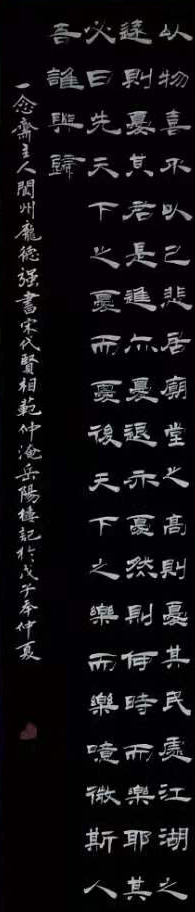 以物喜不以己悲居廟堂之高則憂其民處江湖之
遠則憂其君是進亦憂退亦憂然則何時而樂耶其
必曰先天下之憂而憂後天下之樂而樂噫微斯人
吾誰與歸
一念齋主人閬州龐德强書宋代賢相範仲淹岳陽樓記於戊子年仲夏